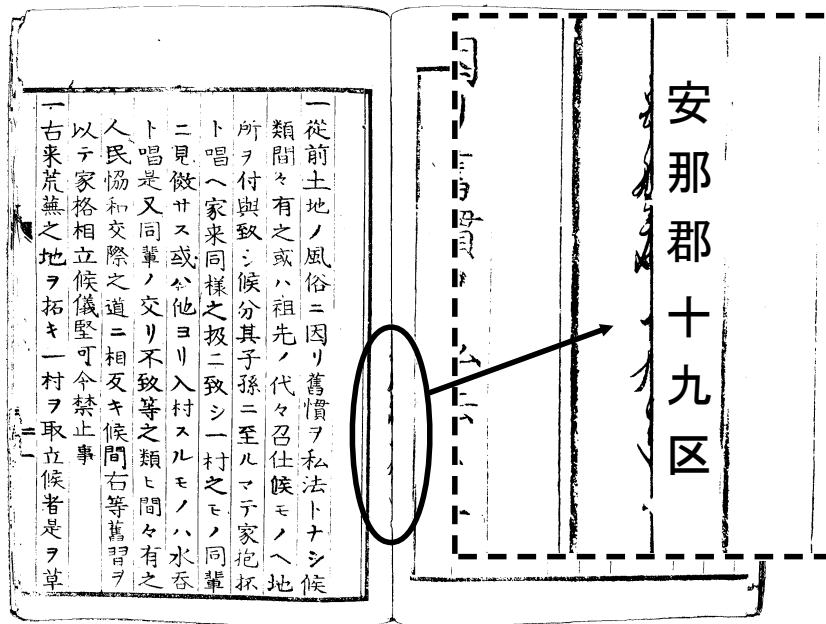 一從前土地ノ風俗ニ因リ舊慣ヲ私法トナシ候
類間々有之或ハ祖先ノ代々召仕候モノヘ地
所ヲ付與致シ候分其子孫ニ至ルマテ家抱抔
ト唱ヘ家来同様之扱ニ致シ一村之モノ同輩
ニ見傚サス或ハ他ヨリ入村スルモノハ水呑
ト唱是又同輩ノ交リ不致等之類ヒ間々有之
人民恊和交際之道ニ相反キ候間右等舊習ヲ
以テ家格相立候儀堅可令禁止事
一古来荒蕪之地ヲ拓キ一村ヲ取立候者是ヲ草
安那郡十九区